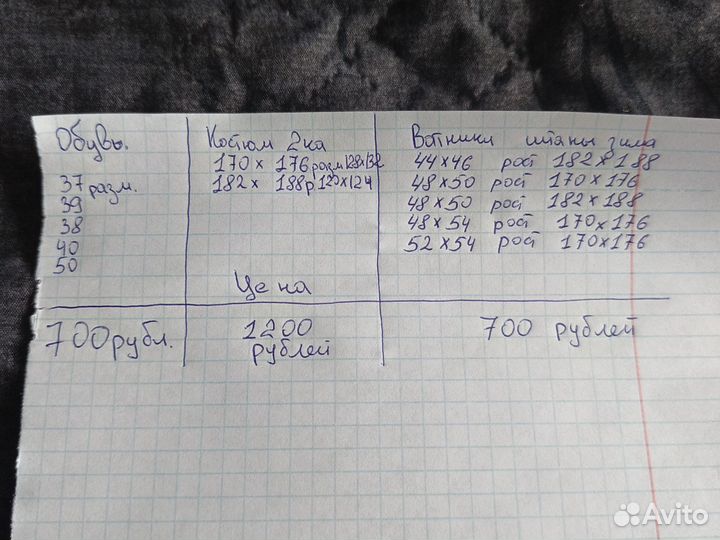 Обувь.
37 разм.
39
38
40
50
Костюм 2ка
170 x 176 разм 128x132
182 x 188 р 120x124
Ватники штаны зима
44x46 рост 182x188
48x50 рост 170x176
48x50 рост 182x188
48x54 рост 170x176
52x54 рост 170x176
Цена
700 рубл.
1200
рублей
700 рублей
Avito